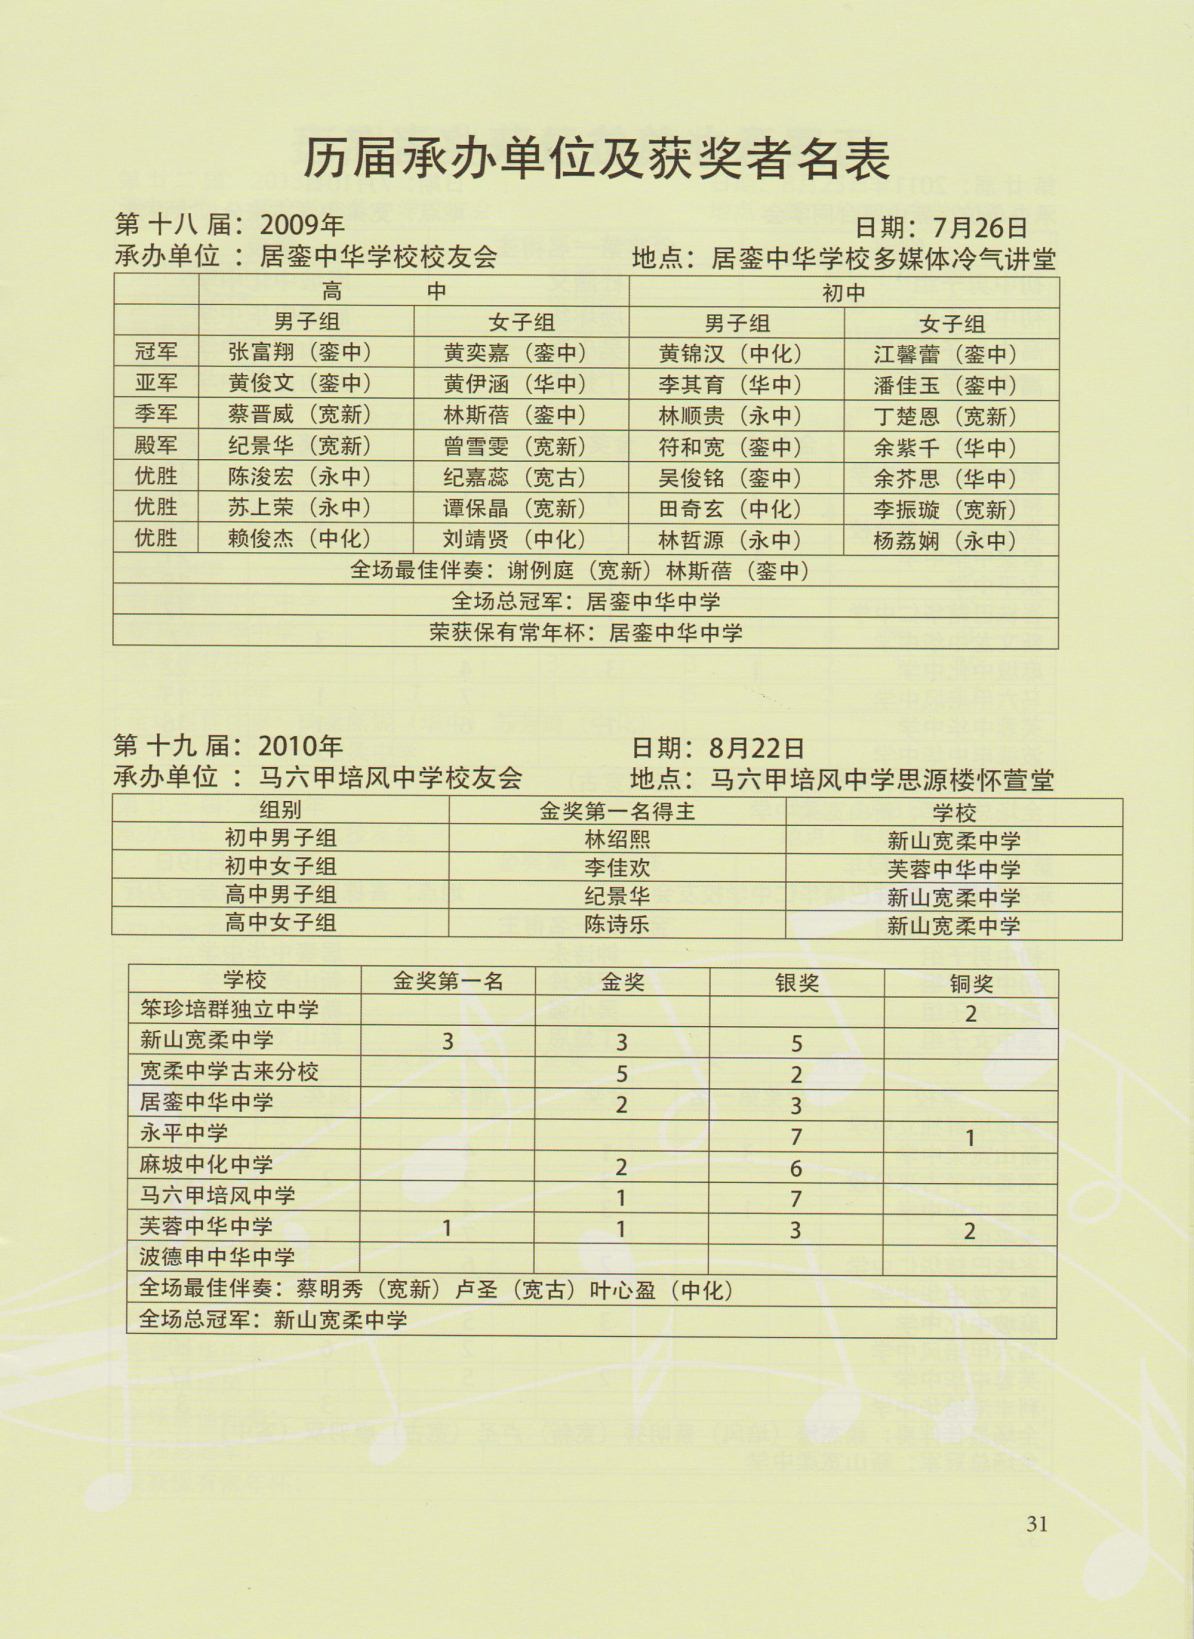 历届承办单位及获奖者名表
第 十八 届：2009年 日期：7月26日
承办单位 ：居銮中华学校校友会 地点：居銮中华学校多媒体冷气讲堂
高 中 初中
男子组 女子组 男子组 女子组
冠军 张富翔（銮中） 黄奕嘉（銮中） 黄锦汉（中化） 江馨蕾（銮中）
亚军 黄俊文（銮中） 黄伊涵（华中） 李其育（华中） 潘佳玉（銮中）
季军 蔡晋威（宽新） 林斯蓓（銮中） 林顺贵（永中） 丁楚恩（宽新）
殿军 纪景华（宽新） 曾雪雯（宽新） 符和宽（銮中） 余紫千（华中）
优胜 陈浚宏（永中） 纪嘉蕊（宽古） 吴俊铭（銮中） 余芥思（华中）
优胜 苏上荣（永中） 谭保晶（宽新） 田奇玄（中化） 李振璇（宽新）
优胜 赖俊杰（中化） 刘靖贤（中化） 林哲源（永中） 杨荔娴（永中）
全场最佳伴奏：谢例庭（宽新）林斯蓓（銮中）
全场总冠军：居銮中华中学
荣获保有常年杯：居銮中华中学
第 十九 届：2010年 日期：8月22日
承办单位 ：马六甲培风中学校友会 地点：马六甲培风中学思源楼怀萱堂
组别 金奖第一名得主 学校
初中男子组 林绍熙 新山宽柔中学
初中女子组 李佳欢 芙蓉中华中学
高中男子组 纪景华 新山宽柔中学
高中女子组 陈诗乐 新山宽柔中学
学校 金奖第一名 金奖 银奖 铜奖
笨珍培群独立中学 2
新山宽柔中学 3 3 5
宽柔中学古来分校 5 2
居銮中华中学 2 3
永平中学 7 1
麻坡中化中学 2 6
马六甲培风中学 1 7
芙蓉中华中学 1 1 3 2
波德申中华中学
全场最佳伴奏：蔡明秀（宽新）卢圣（宽古）叶心盈（中化）
全场总冠军：新山宽柔中学
31